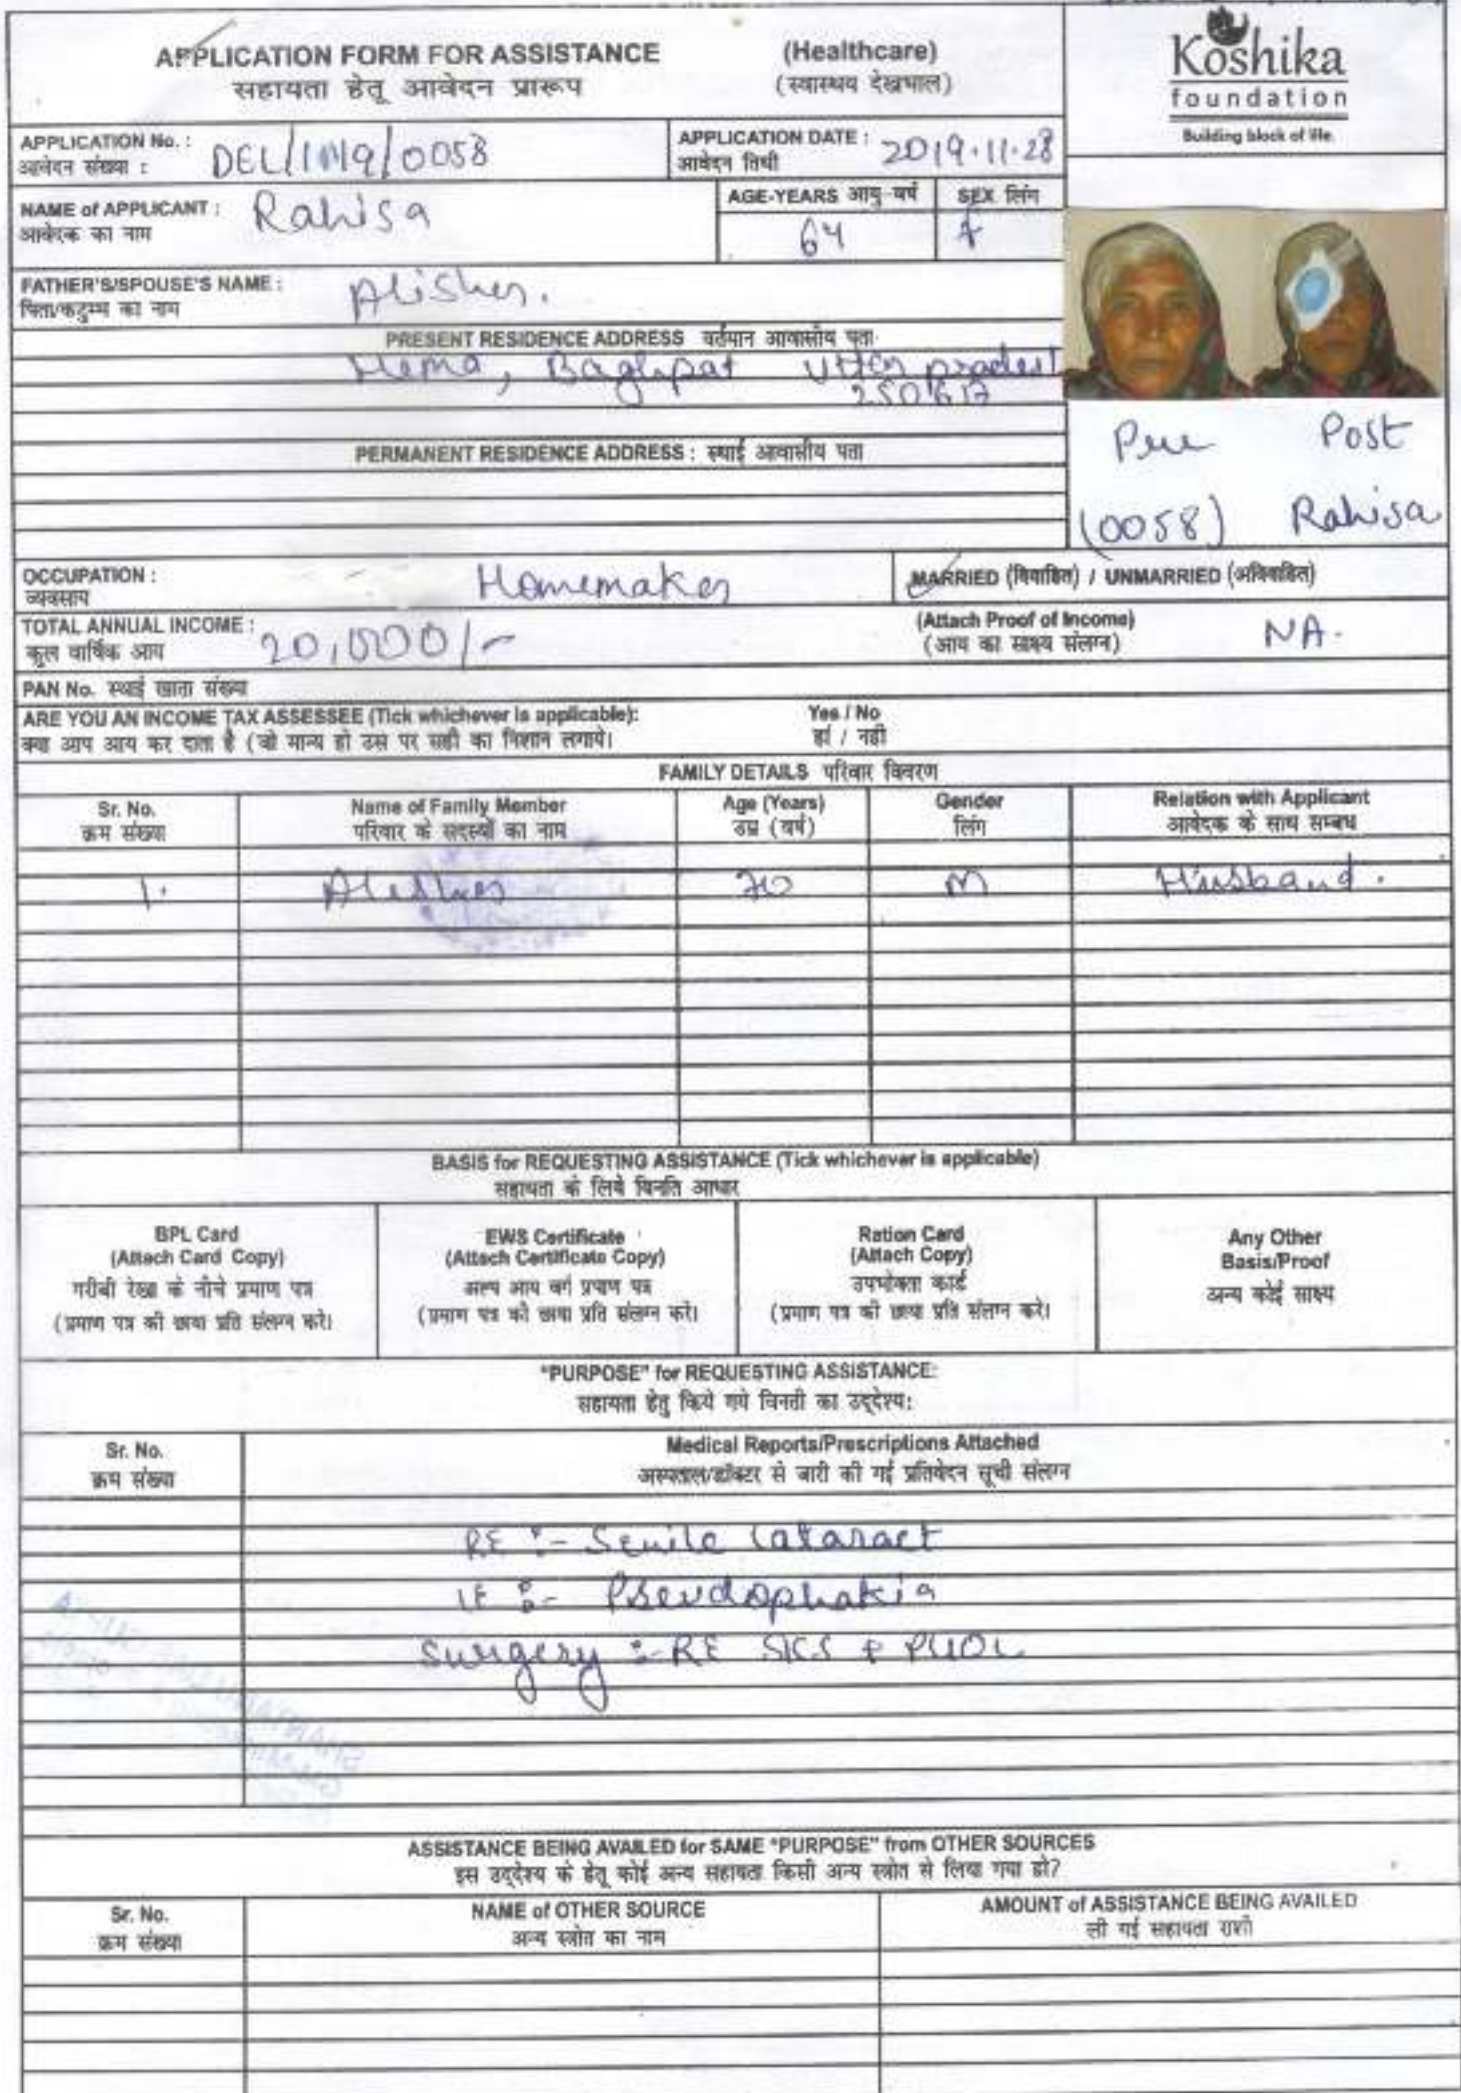 APPLICATION FORM FOR ASSISTANCE (Healthcare)
सहायता हेतू आवेदन प्रारूप (स्वास्थय देखभाल)
Koshika
foundation
Building block of life.
APPLICATION No. : DEL/1119/0058
आवेदन संख्या :
APPLICATION DATE : 2019.11.28
आवेदन तिथी
NAME of APPLICANT : Rahisa
आवेदक का नाम
AGE-YEARS आयु वर्ष
64
SEX लिंग
F
FATHER'S/SPOUSE'S NAME : Alisher.
पिता/कटुम्भ का नाम
PRESENT RESIDENCE ADDRESS वर्तमान आवासीय पता
Baghpat Utter pradesh
250617
Pre Post
(0058) Rahisa
PERMANENT RESIDENCE ADDRESS : स्थाई आवासीय पता
OCCUPATION : Homemaker
व्यवसाय
MARRIED (विवाहित) / UNMARRIED (अविवाहित)
TOTAL ANNUAL INCOME : 20,000/-
कुल वार्षिक आय
(Attach Proof of Income) NA.
(आय का साक्ष्य संलग्न)
PAN No. स्थाई खाता संख्या
ARE YOU AN INCOME TAX ASSESSEE (Tick whichever is applicable): Yes / No
क्या आप आय कर दाता है (जो मान्य हो उस पर सही का निशान लगाये। हां / नही
FAMILY DETAILS परिवार विवरण
Sr. No. Name of Family Member Age (Years) Gender Relation with Applicant
क्रम संख्या परिवार के सदस्यों का नाम उम्र (वर्ष) लिंग आवेदक के साथ सम्बध
1. Alisher 70 M Husband.
BASIS for REQUESTING ASSISTANCE (Tick whichever is applicable)
सहायता के लिये विनति आधार
BPL Card
(Attach Card Copy)
गरीबी रेखा के नीचे प्रमाण पत्र
(प्रमाण पत्र की छाया प्रति संलग्न करे।
EWS Certificate
(Attach Certificate Copy)
अल्प आय वर्ग प्रमाण पत्र
(प्रमाण पत्र की छाया प्रति संलग्न करे।
Ration Card
(Attach Copy)
उपभोक्ता कार्ड
(प्रमाण पत्र की छाया प्रति संलग्न करे।
Any Other
Basis/Proof
अन्य कोई साक्ष्य
"PURPOSE" for REQUESTING ASSISTANCE:
सहायता हेतु किये गये विनती का उद्देश्य:
Sr. No. Medical Reports/Prescriptions Attached
क्रम संख्या अस्पताल/डॉक्टर से जारी की गई प्रतिवेदन सूची संलग्न
RE :- Senile Cataract
LE :- Pseudophakia
Surgery :- RE SICS + PCIOL
ASSISTANCE BEING AVAILED for SAME "PURPOSE" from OTHER SOURCES
इस उद्देश्य के हेतू कोई अन्य सहायता किसी अन्य स्त्रोत से लिया गया हो?
Sr. No. NAME of OTHER SOURCE AMOUNT of ASSISTANCE BEING AVAILED
क्रम संख्या अन्य स्त्रोत का नाम ली गई सहायता राशी